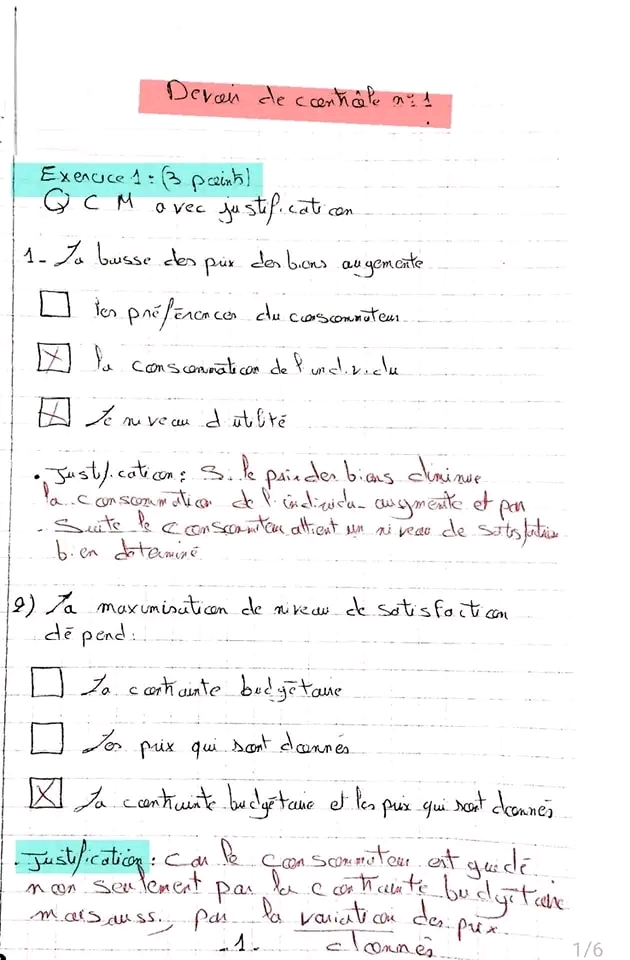 Devoir de contrôle n°1
Exercice 1 : (3 points)
Q C M avec justification
1- La baisse des prix des biens augmente
les préférences du consommateur
X la consommation de l'individu
X Le niveau d'utilité
. Justification : Si le prix des biens diminue
la consommation de l'individu augmente et par
suite le consommateur attient un niveau de satisfaction
bien déterminé
2) La maximisation de niveau de satisfaction
dépend :
La contrainte budgétaire
Les prix qui sont donnés
X La contrainte budgétaire et les prix qui sont donnés
. Justification : Car le consommateur est guidé
non seulement par la contrainte budgétaire
mais aussi, par la variation des prix
- 1 - donnés
1/6